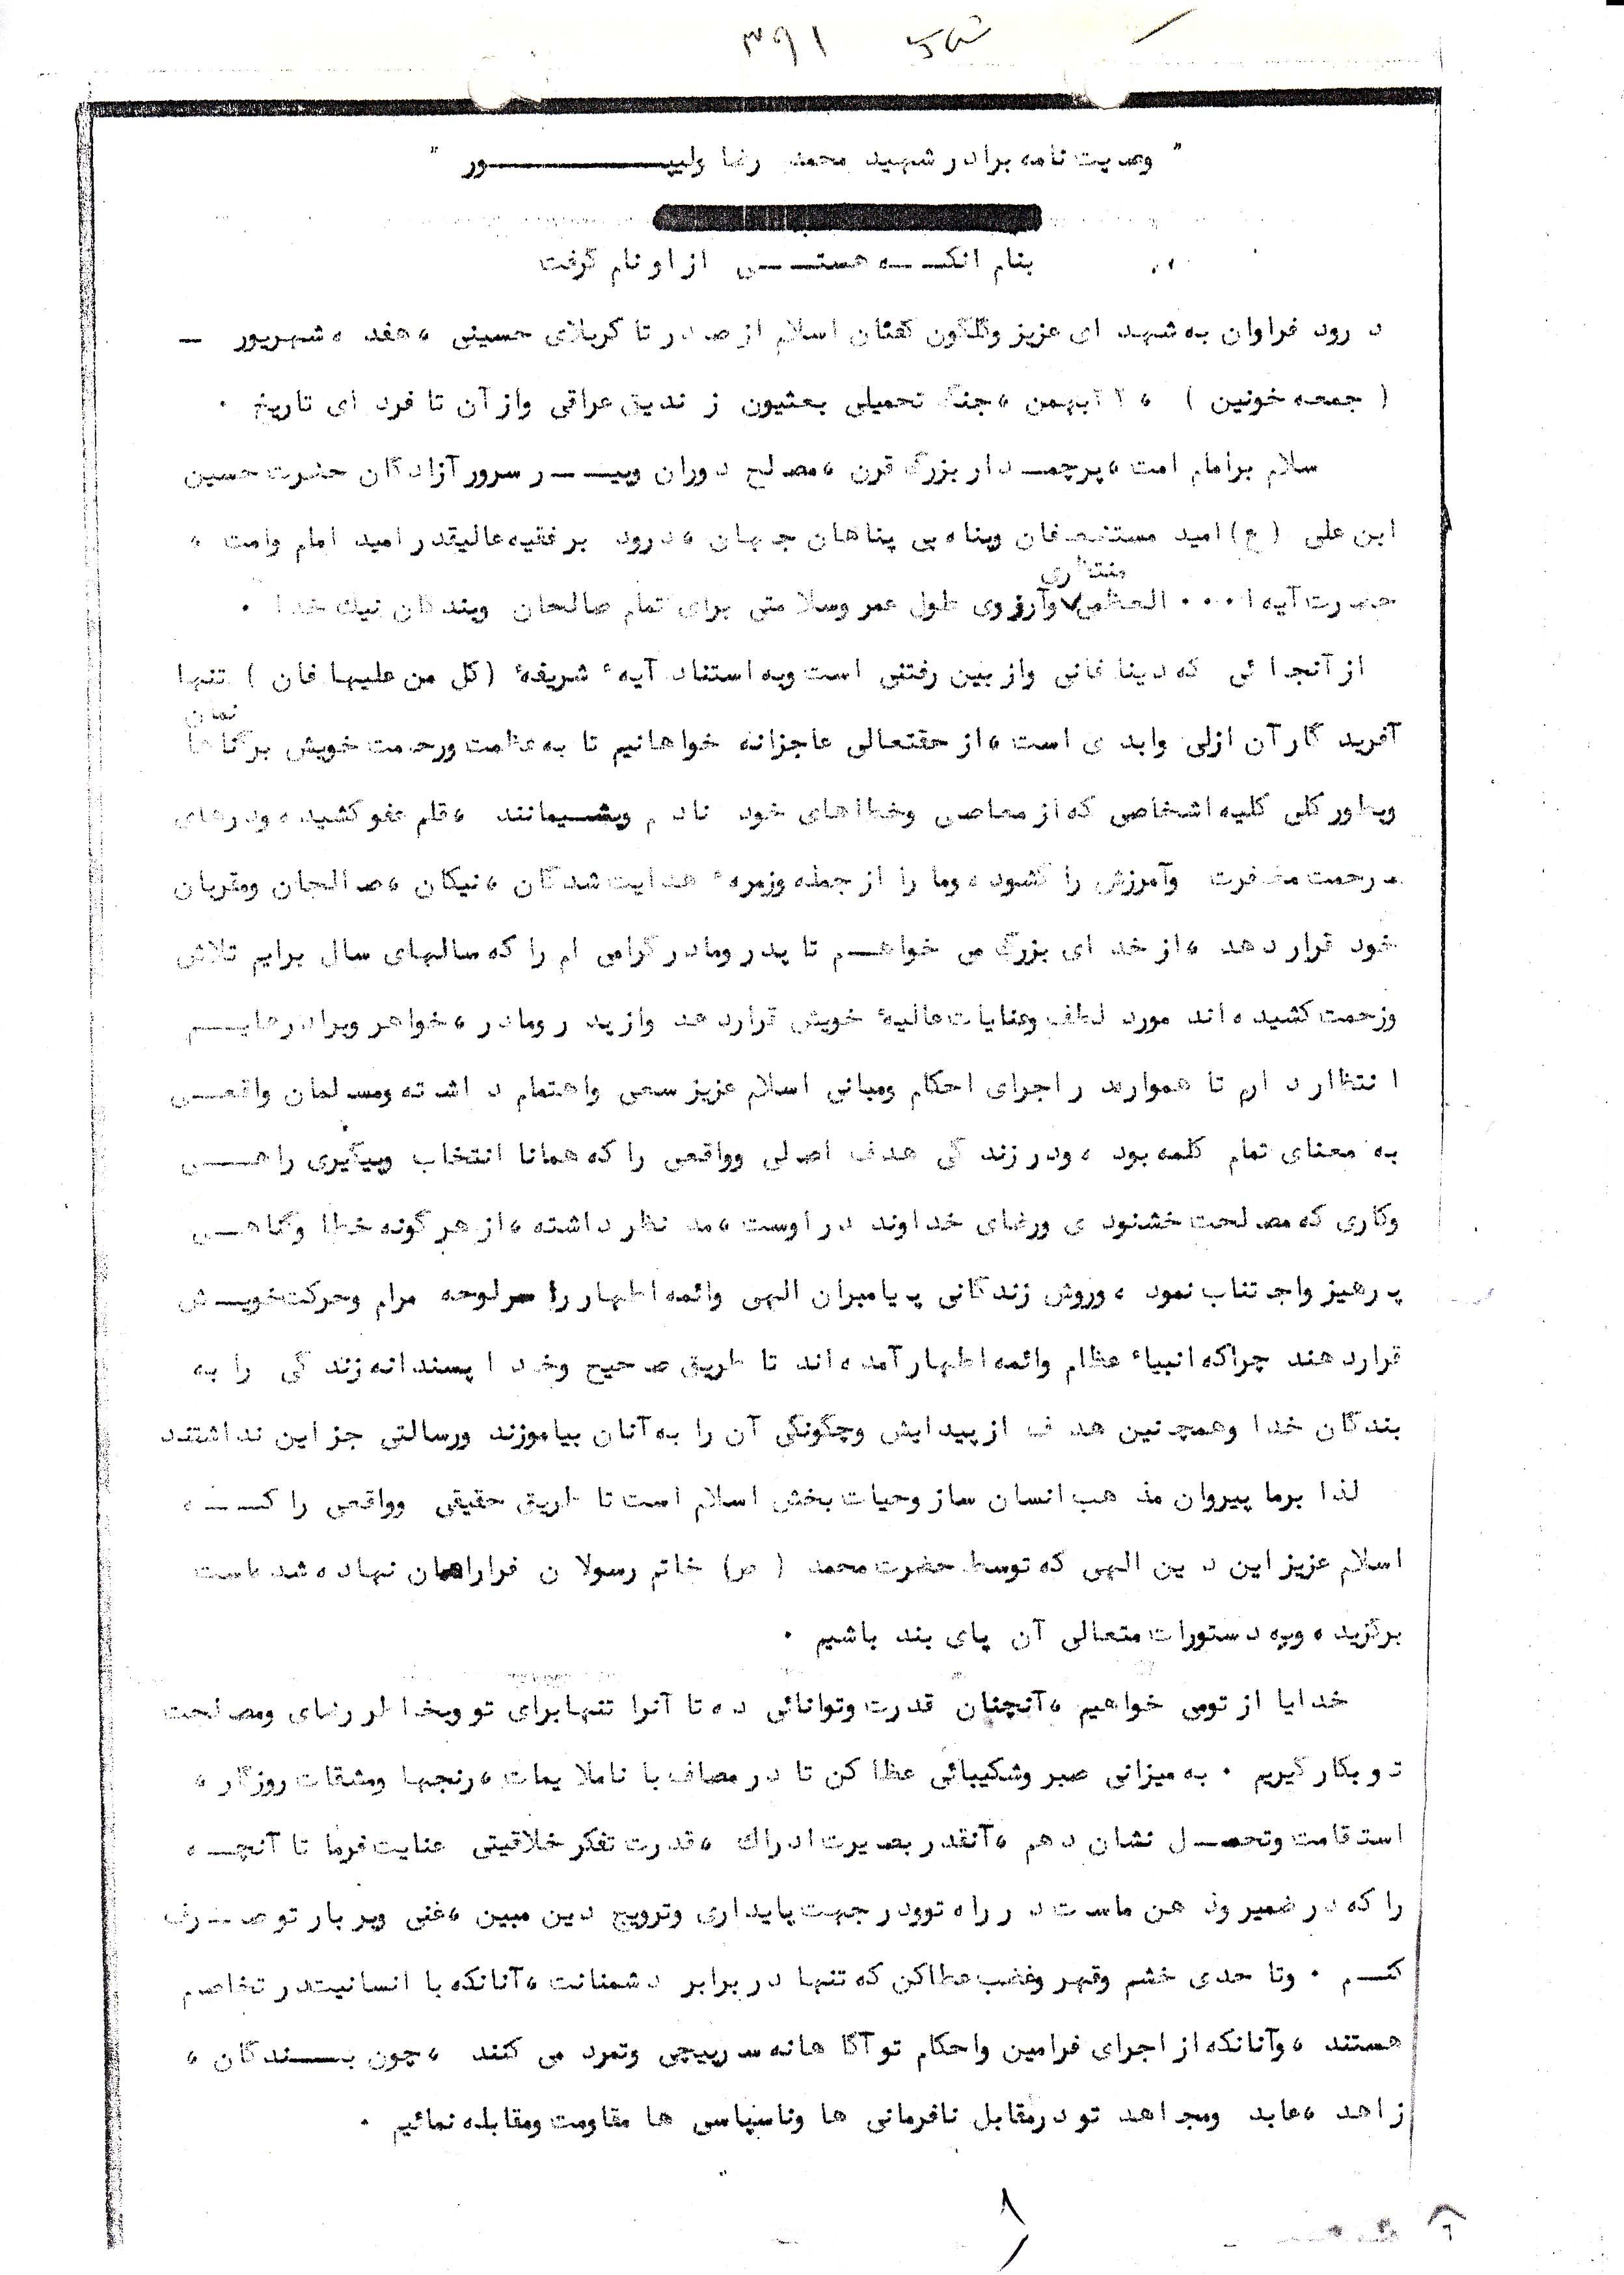 ۳۹۱
" وصیت نامه برادر شهید محمد رضا ولیپـــــــــور "
بنام انکـــه هستـــی از او نام گرفت
درود فراوان به شهدای عزیز وگلگون کفنان اسلام از صدر تا کربلای حسینی ، هفده شهریور ـ
( جمعه خونین ) ، ۲۲ بهمن ، جنگ تحمیلی بعثیون زندیق عراقی واز آن تا فردای تاریخ .
سلام برامام امت ، پرچمـــدار بزرگ قرن ، مصلح دوران وپیـــر سرور آزادگان حضرت حسین
ابن علی (ع) امید مستضعفان وپناه بی پناهان جهان ، درود بر فقیه عالیقدر امید امام وامت ،
حضرت آیه ا... العظمی منتظری وآرزوی طول عمر وسلامتی برای تمام صالحان وبندگان نیک خدا .
از آنجائی که دینا فانی واز بین رفتنی است وبه استناد آیهٔ شریفهٔ (کل من علیها فان ) تنها
آفریدگار آن ازلی وابدی است ، از حقتعالی عاجزانه خواهانیم تا به عظمت ورحمت خویش برگناهانمان
وبطور کلی کلیه اشخاصی که از معاصی وخطاهای خود نادم وپشـیمانند ، قلم عفو کشیده ودرهای
ـ رحمت مغفرت وآمرزش را گشوده وما را از جمله وزمرهٔ هدایت شدگان ، نیکان ، صالحان ومقربان
خود قرار دهد ، از خدای بزرگ می خواهـــم تا پدر ومادر گرامی ام را که سالهای سال برایم تلاش
وزحمت کشیده اند مورد لطف وعنایات عالیهٔ خویش قرار دهد واز پدر ومادر ، خواهر وبرادرهایـــم
انتظار دارم تا همواره در اجرای احکام ومبانی اسلام عزیز سعی واهتمام داشته ومسلمان واقعـــی
به معنای تمام کلمه بود ، ودر زندگی هدف اصلی وواقعی را که همانا انتخاب وپیگیری راهـــی
وکاری که مصلحت خشنودی ورضای خداوند در اوست ، مد نظر داشته ، از هر گونه خطا وگناهـــی
پرهیز واجتناب نمود ، وروش زندگانی پیامبران الهی وائمه اطهار را سرلوحه مرام وحرکت خویـــش
قرار دهند چراکه انبیاء عظام وائمه اطهار آمده اند تا طریق صحیح وخدا پسندانه زندگی را به
بندگان خدا وهمچنین هدف از پیدایش وچگونگی آن را به آنان بیاموزند ورسالتی جز این نداشتند
لذا برما پیروان مذهب انسان ساز وحیات بخش اسلام است تا طریق حقیقی وواقعی را کـــه
اسلام عزیز این دین الهی که توسط حضرت محمد (ص) خاتم رسولان فراراهمان نهاده شده است
برگزیده وبه دستورات متعالی آن پای بند باشیم .
خدایا از تومی خواهیم ، آنچنان قدرت وتوانائی ده تا آنرا تنها برای تو وبخاطر رضای ومصلحت
تو بکار گیریم . به میزانی صبر وشکیبائی عطا کن تا در مصاف با ناملایمات ، رنجها ومشقات روزگار ،
استقامت وتحمـــل نشان دهم ، آنقدر بصیرت ادراک ، قدرت تفکر خلاقیتی عنایت فرما تا آنچـــه
را که در ضمیر وذهن ماست در راه توودر جهت پایداری وترویج دین مبین ، غنی وپر بار تو صـــرف
کنـــم . وتا حدی خشم وقهر وغضب عطاکن که تنها در برابر دشمنانت ، آنانکه با انسانیتدر تخاصم
هستند ، وآنانکه از اجرای فرامین واحکام تو آگاهانه سرپیچی وتمرد می کنند ، چون بـــندگان ،
زاهد ، عابد ومجاهد تو درمقابل نافرمانی ها وناسپاسی ها مقاومت ومقابله نمائیم .